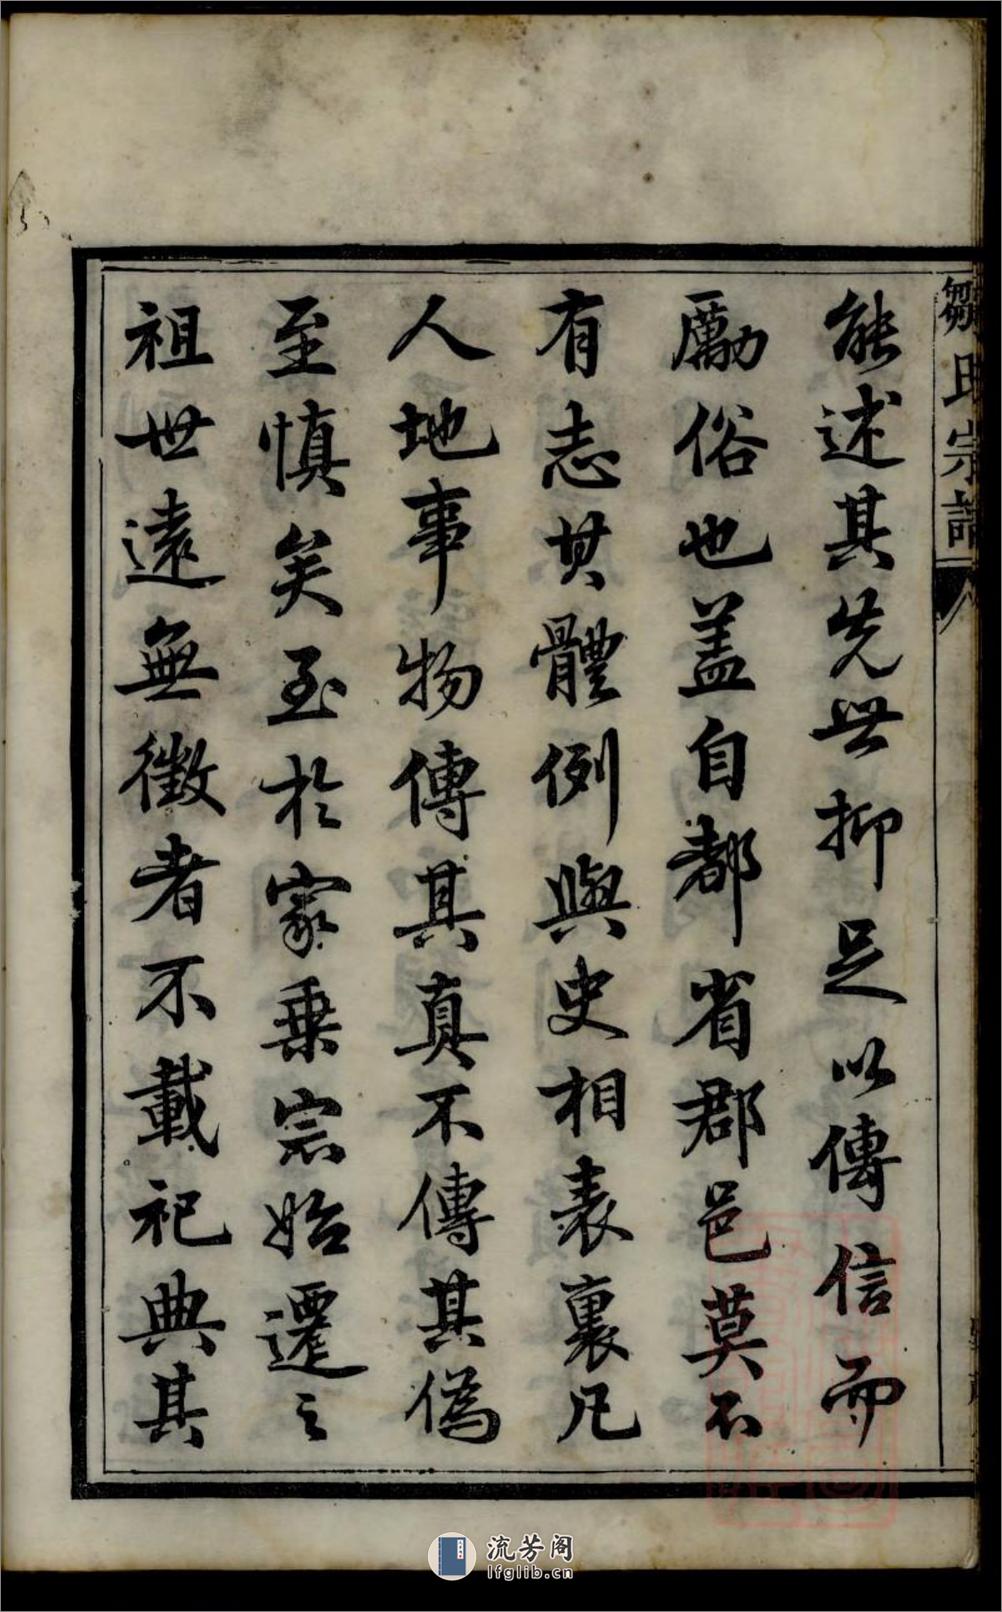 能述其先世抑足以傳信而
勵俗也蓋自都省郡邑莫不
有志其體例與史相表裏凡
人地事物傳其真不傳其偽
至慎矣至於家乘宗始遷之
祖世遠無徵者不載祀典其
鄒氏宗譜
流芳阁
lfglib.cn